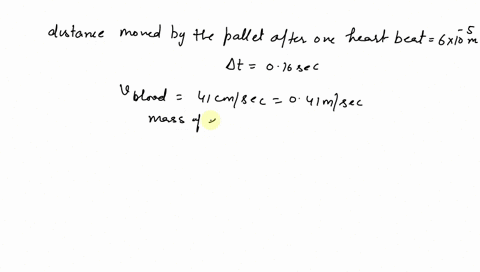 distance moved by the pallet after one heart beat = 6×10⁻⁵ m
Δt = 0.16 sec
V blood = 41 cm/sec = 0.41 m/sec
mass of